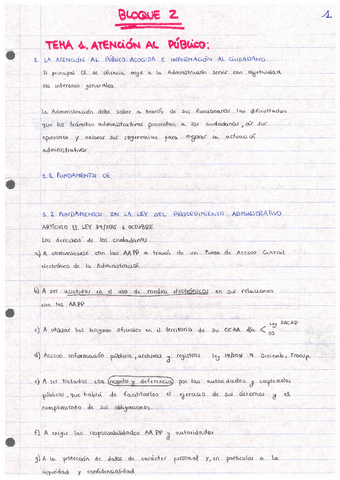 BLOQUE 2
1
TEMA 1. ATENCIÓN AL PÚBLICO:
1. LA ATENCIÓN AL PÚBLICO: ACOGIDA E INFORMACIÓN AL CIUDADANO.
El principal CE de eficacia exije a la Administración servir con objetividad
los intereses generales.
La Administración debe saber a través de sus funcionarios las dificultades
que los trámites administrativos presentan a los ciudadanos, oír sus
opiniones y valorar sus sugerencias para mejorar la actuación
administrativa.
1.1 FUNDAMENTOS CE
1.2 FUNDAMENTOS EN LA LEY DEL PROCEDIMIENTO ADMINISTRATIVO
ARTÍCULO 13, LEY 39/2015 1 OCTUBRE
Los derechos de los ciudadanos
a) A comunicarse con las AAPP a través de un Punto de Acceso General
electrónico de la Administración
b) A ser asistidos en el uso de medios electrónicos en sus relaciones
con las AAPP
c) A utilizar las lenguas oficiales en el territorio de su CCAA
Ley PACAP
d) Acceso información pública, archivos y registros Ley 19/2013 9 Diciemb, Transp.
e) A ser tratados con respeto y deferencia por las autoridades y empleados
públicos, que habrá de facilitarles el ejercicio de sus derechos y el
cumplimiento de sus obligaciones.
f) A exigir las responsabilidades AAPP y autoridades
g) A la protección de datos de carácter personal y, en particular a la
seguridad y confidencialidad.